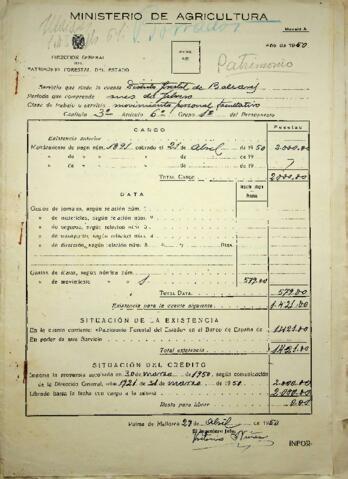 MINISTERIO DE AGRICULTURA
Modelo A
Año de 1950
DIRECCION GENERAL
DEL
PATRIMONIO FORESTAL DEL ESTADO
Patrimonio
Servicio que rinde la cuenta Distrito forestal de Baleares
Periodo que comprende mes del febrero
Clase de trabajo o servicio movimiento personal facultativo
Capítulo 3º Artículo 6º Grupo 1º del Presupuesto
CARGO
Pesetas
Existencia anterior
Mandamiento de pago núm. 1091 cobrado el 21 de Abril de 1950 2.000.00
» de » » » el de de 19
» de » » » el de de 19
TOTAL CARGO 2000.00
DATA
Gastos de jornales, según relación núm. 1
» de materiales, según relación núm. 2
» de seguros, según relación núm. 3
» de transportes, según relación núm. 4
» de dirección, según relación núm. 5
Gastos de dietas, según nómina núm.
» de movimiento 1 579.00
TOTAL DATA 579.00
Existencia para la cuenta siguiente 1.421.00
SITUACIÓN DE LA EXISTENCIA
En la cuenta corriente «Patrimonio Forestal del Estado» en el Banco de España de 1421.00
En poder de este Servicio
Total existencia 1421.00
SITUACIÓN DEL CRÉDITO
Importa la propuesta aprobada en 30 de marzo de 1950, según comunicación
de la Dirección General, núm. 1721 de 31 de marzo de 1950 2.000.00
Librado hasta la fecha con cargo a la misma 2.000.00
Resta por librar 0.00
Palma de Mallorca 29 de Abril de 1950
El Ingeniero Jefe,
INFOR-